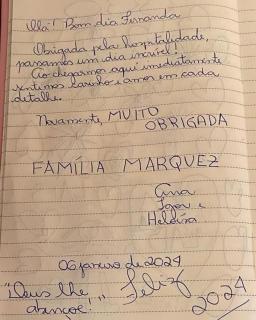 Olá! Bom dia Fernanda
Obrigada pela hospitalidade,
passamos um dia incrível!
Ao chegarmos aqui imediatamente
sentimos carinho e amor em cada
detalhe.
Novamente, MUITO
OBRIGADA
FAMÍLIA MARQUEZ
Ana
Igor e
Heloísa
06 janeiro de 2024
"Deus lhe
abençoe!"
Feliz
2024